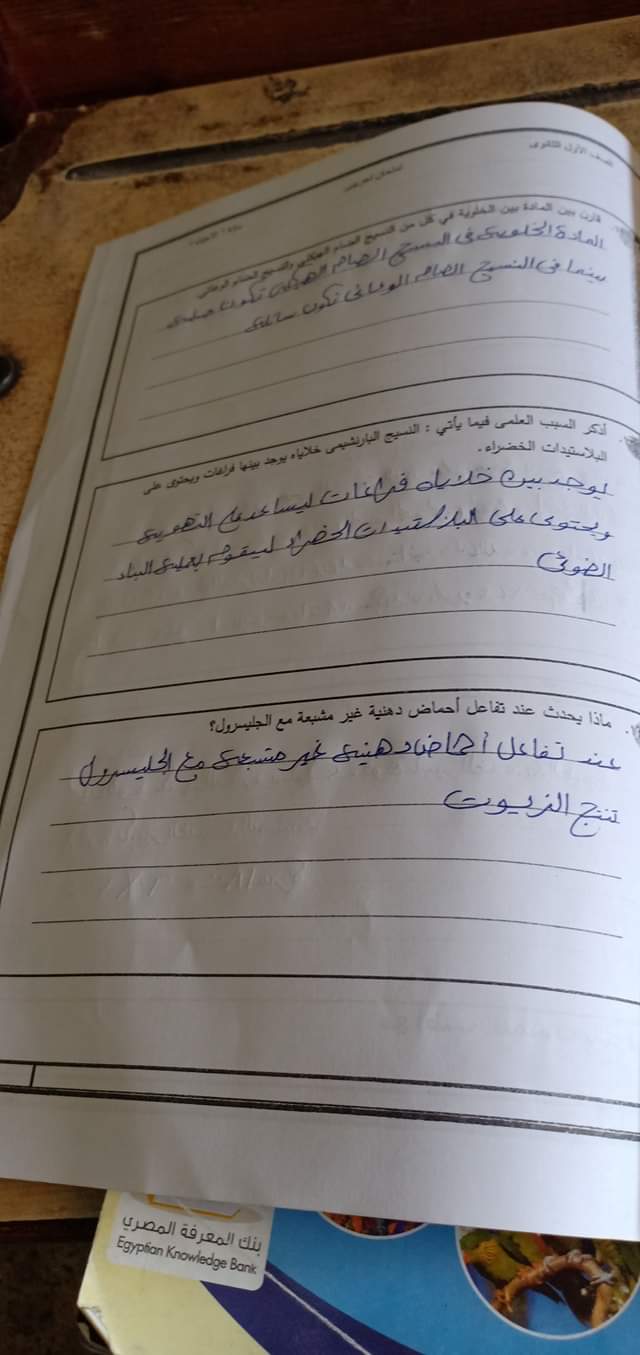 الصف الأول الثانوى
قارن بين المادة بين الخلوية في كل من النسيج الضام الهيكلى والنسيج الضام الوعائى
المادة الخلوية فى النسيج الضام الهيكلى تكون صلبة
بينما فى النسيج الضام الوعائى تكون سائلة
أذكر السبب العلمى فيما يأتي : النسيج البارنشيمى خلاياه يوجد بينها فراغات ويحتوى على
البلاستيدات الخضراء .
يوجد بين خلاياه فراغات ليساعد على التهوية
ويحتوى على البلاستيدات الخضراء ليقوم بعملية البناء
الضوئى
ماذا يحدث عند تفاعل أحماض دهنية غير مشبعة مع الجليسرول؟
عند تفاعل أحماض دهنية غير مشبعة مع الجليسرول
تنتج الزيوت
بنك المعرفة المصري
Egyptian Knowledge Bank